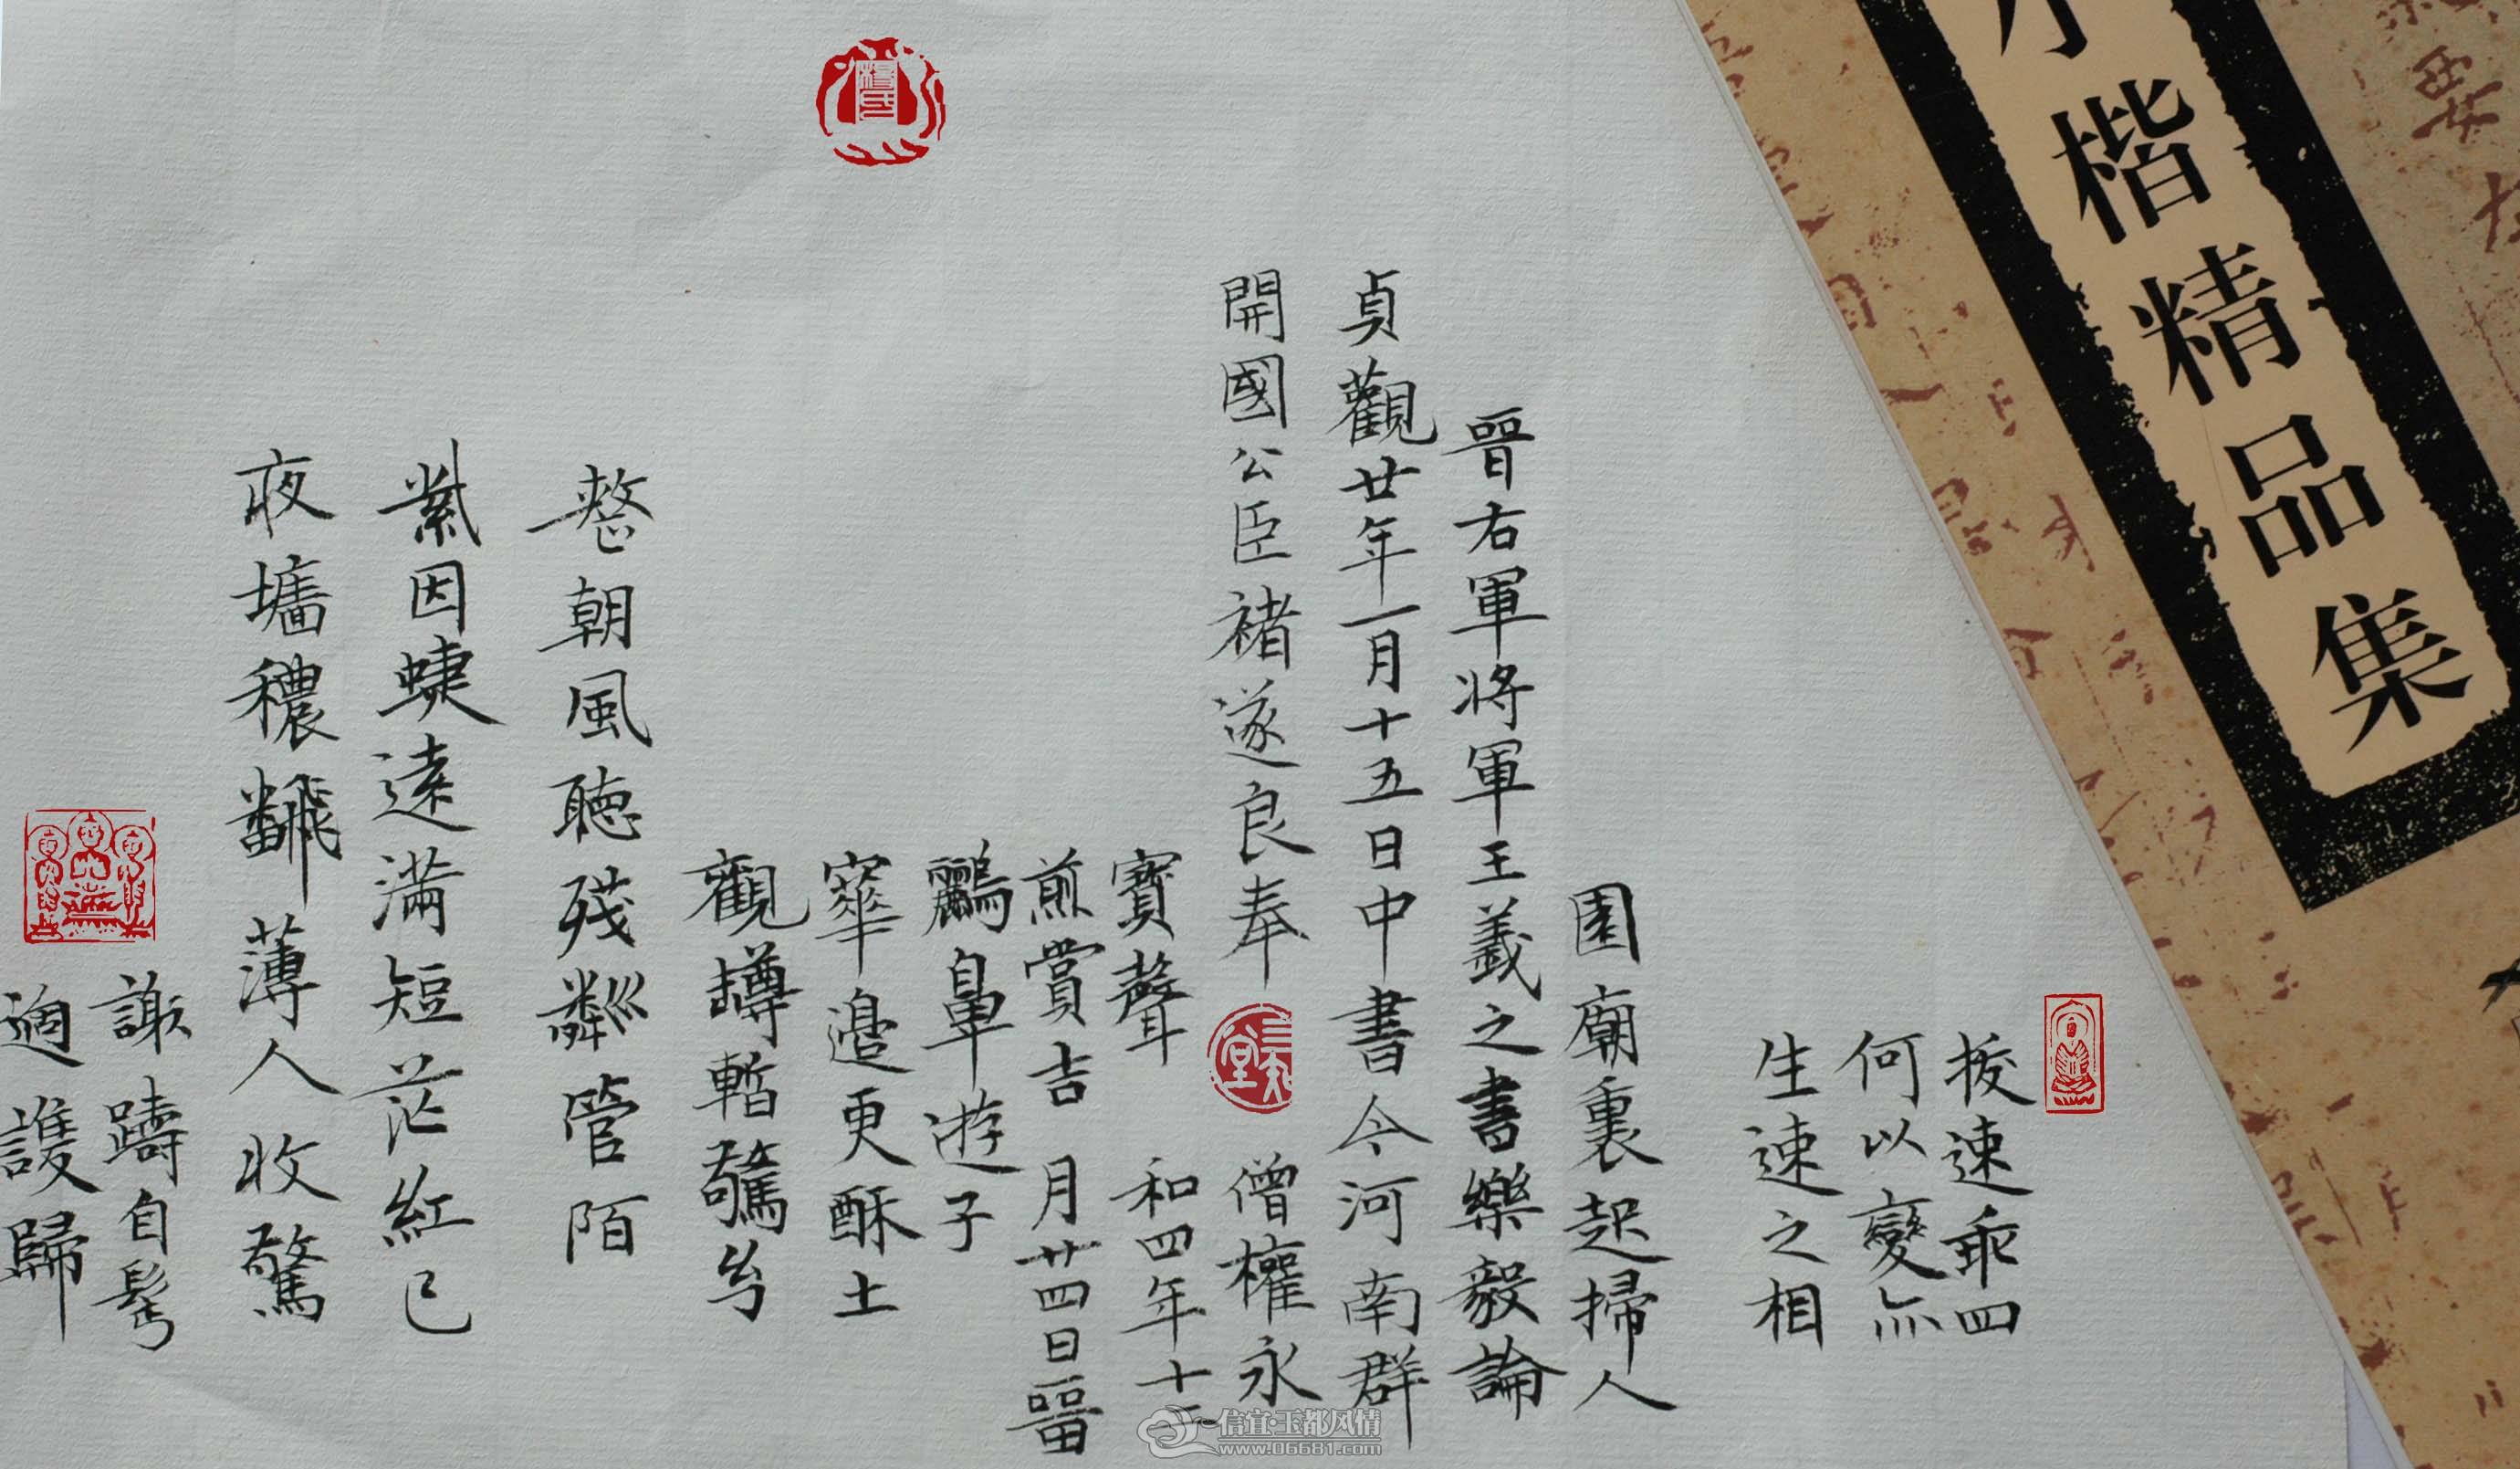 小楷精品集
捘速乖四
何以變亦
生速之相
園廟裏起掃人
晉右軍將軍王羲之書樂毅論
貞觀廿年一月十五日中書令河南群
開國公臣褚遂良奉
僧權永
寶聲
和四年十二
煎賞吉
月廿四日
鼻遊子
邉更酥土
觀 暫驚
朝風聽殘 管陌
因 遠滿短茫紅已
夜墻穠 薄人收驚
自
護歸
三知堂
信宜·玉都风情
www.06681.com